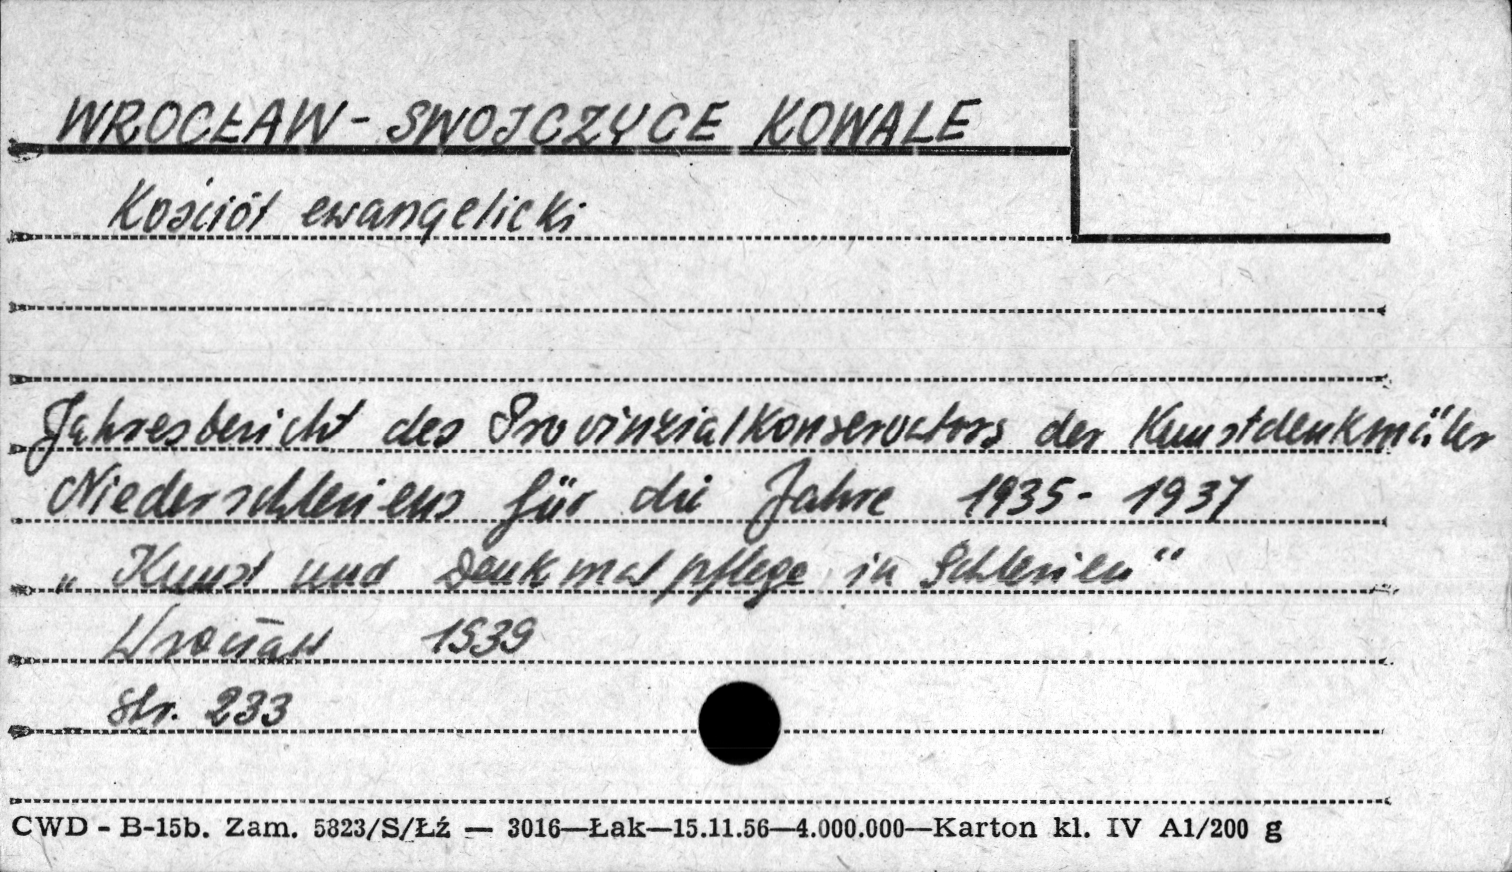 WROCŁAW - SWOJCZYCE KOWALE
Kościół ewangelicki
Jahresbericht des Provinzialkonservators der Kunstdenkmäler
Niederschlesiens für die Jahre 1935 - 1937
„Kunst und Denkmalpflege in Schlesien“
Wrocław 1939
str. 233
CWD - B-15b. Zam. 5823/S/Łź — 3016—Łak—15.11.56—4.000.000—Karton kl. IV A1/200 g